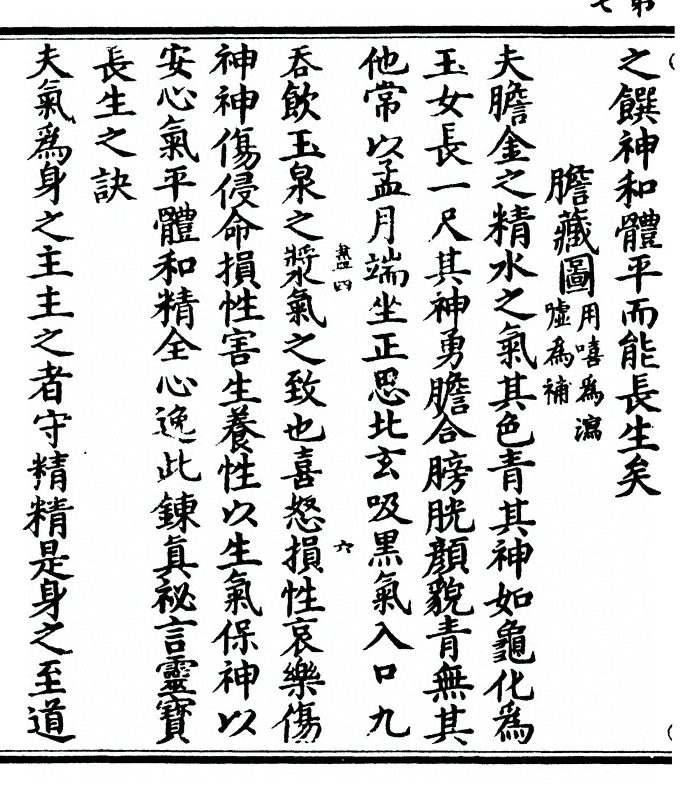 之饌神和體平而能長生矣
膽藏圖
用嘻為瀉
噓為補
夫膽金之精水之氣其色青其神如龜化為
玉女長一尺其神勇膽合膀胱顏貌青無其
他常以孟月端坐正思北玄吸黑氣入口九
吞飲玉泉之漿氣之致也喜怒損性哀樂傷
盡四
六
神神傷侵命損性害生養性以生氣保神以
安心氣平體和精全心逸此鍊真祕言靈寶
長生之訣
夫氣爲身之主主之者守精精是身之至道